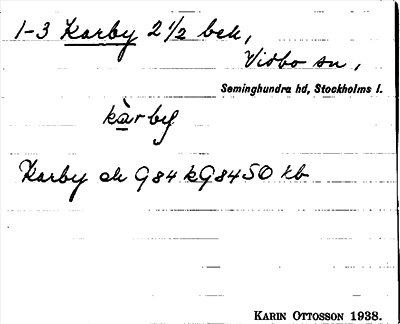 1-3 Karby 2 1/2 beh,
Vidbo sn,
Seminghundra hd, Stockholms l.
kàrby
Karby ek G84 kG84SO kb
KARIN OTTOSSON 1938.